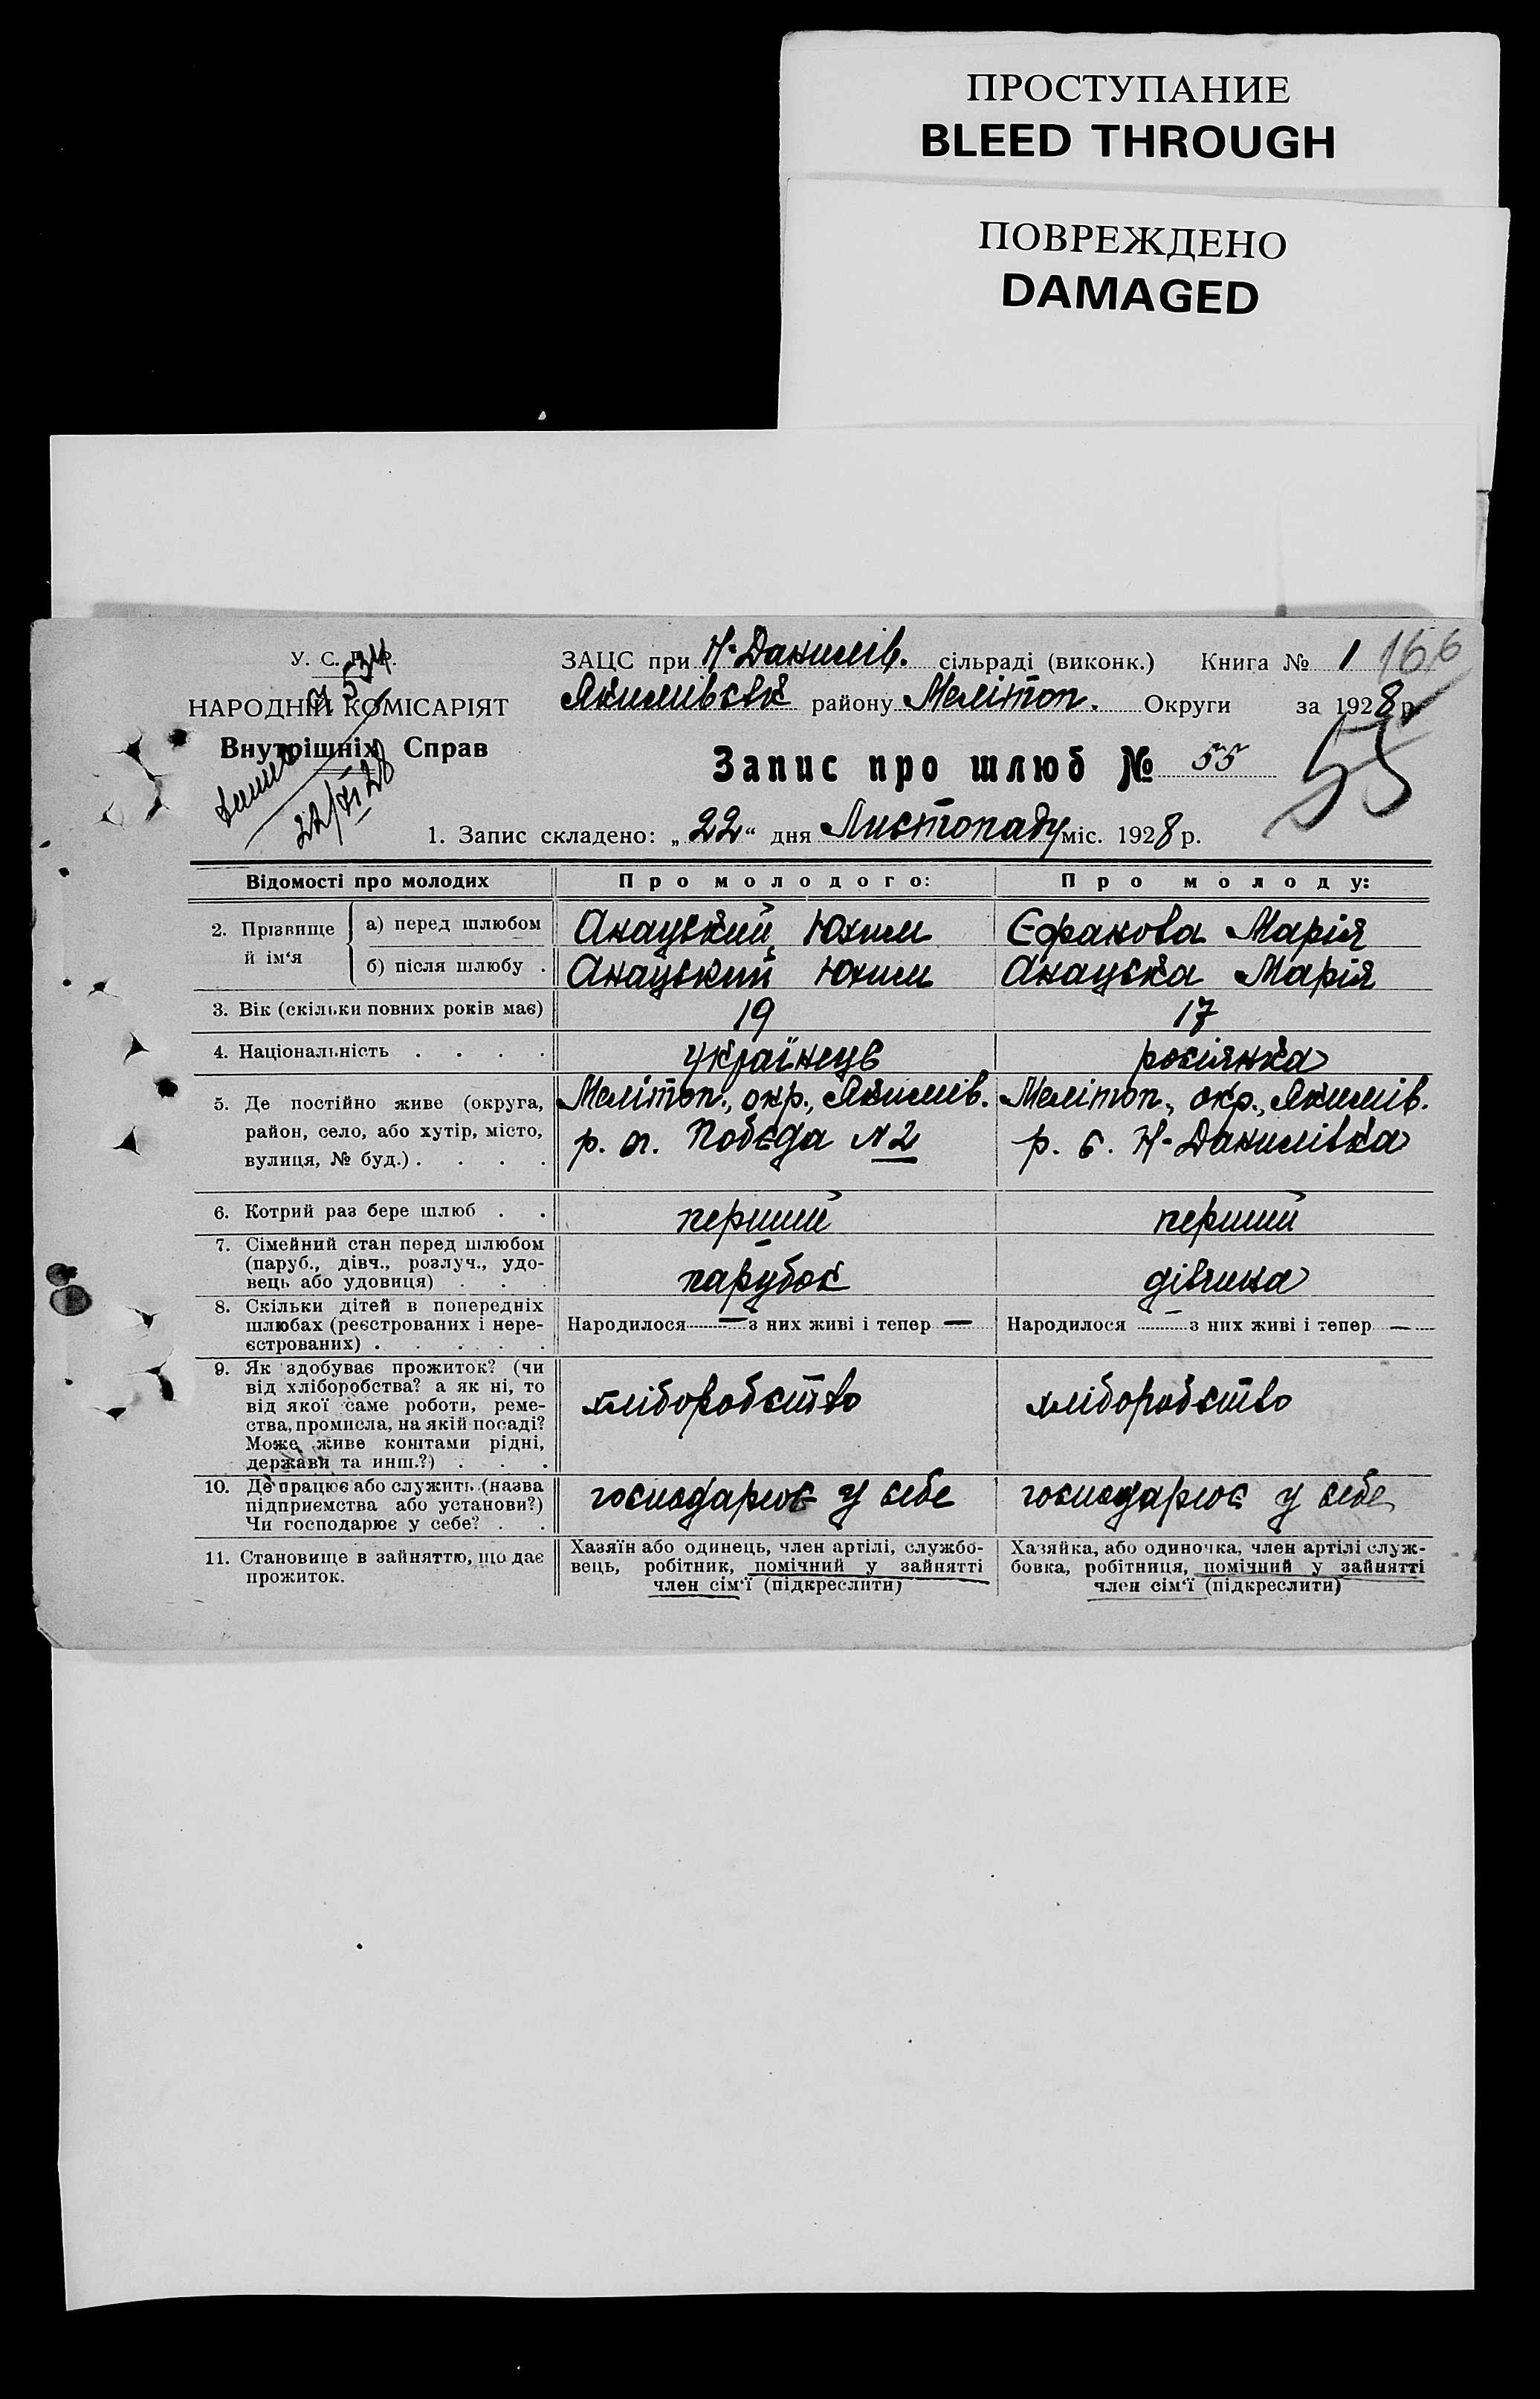 ПРОСТУПАНИЕ
BLEED THROUGH
ПОВРЕЖДЕНО
DAMAGED
У. С. Р. Р.
534
НАРОДНІЙ КОМІСАРІЯТ
Внутрішніх Справ
22/XI 28
ЗАЦС при Н-Данилів. сільраді (виконк.) Книга № 1 166
Якимівськ району Мелітоп. Округи за 1928 р.
Запис про шлюб № 55 55
1. Запис складено: „22“ дня Листопаду міс. 1928 р.
Відомості про молодих Про молодого: Про молоду:
2. Прізвище й ім‘я а) перед шлюбом Анацький Юхим Єфанова Марія
б) після шлюбу . Анацький Юхим Анацька Марія
3. Вік (скільки повних років має) 19 17
4. Національність . . . . українець росіянка
5. Де постійно живе (округа, Мелітоп., окр., Якимів. Мелітоп., окр., Якимів.
район, село, або хутір, місто, р. п. Побєда №2 р. с. Н-Данилівка
вулиця, № буд.) . . . .
6. Котрий раз бере шлюб . . перший перший
7. Сімейний стан перед шлюбом
(паруб., дівч., розлуч., удо-
вець або удовиця) . . . парубок дівчина
8. Скільки дітей в попередніх
шлюбах (реєстрованих і нере- Народилося — з них живі і тепер — Народилося — з них живі і тепер —
єстрованих) . . . . . .
9. Як здобуває прожиток? (чи
від хліборобства? а як ні, то
від якої саме роботи, реме- хліборобство хліборобство
ства, промисла, на якій посаді?
Може живе коштами рідні,
держави та инш.?) . . .
10. Де працює або служить (назва
підприємства або установи?) господарює у себе господарює у себе
Чи господарює у себе? . .
11. Становище в зайняттю, що дає Хазяїн або одинець, член артілі, службо- Хазяйка, або одиночка, член артілі служ-
прожиток. вець, робітник, помічний у зайнятті бовка, робітниця, помічний у зайнятті
член сім‘ї (підкреслити) член сім‘ї (підкреслити)